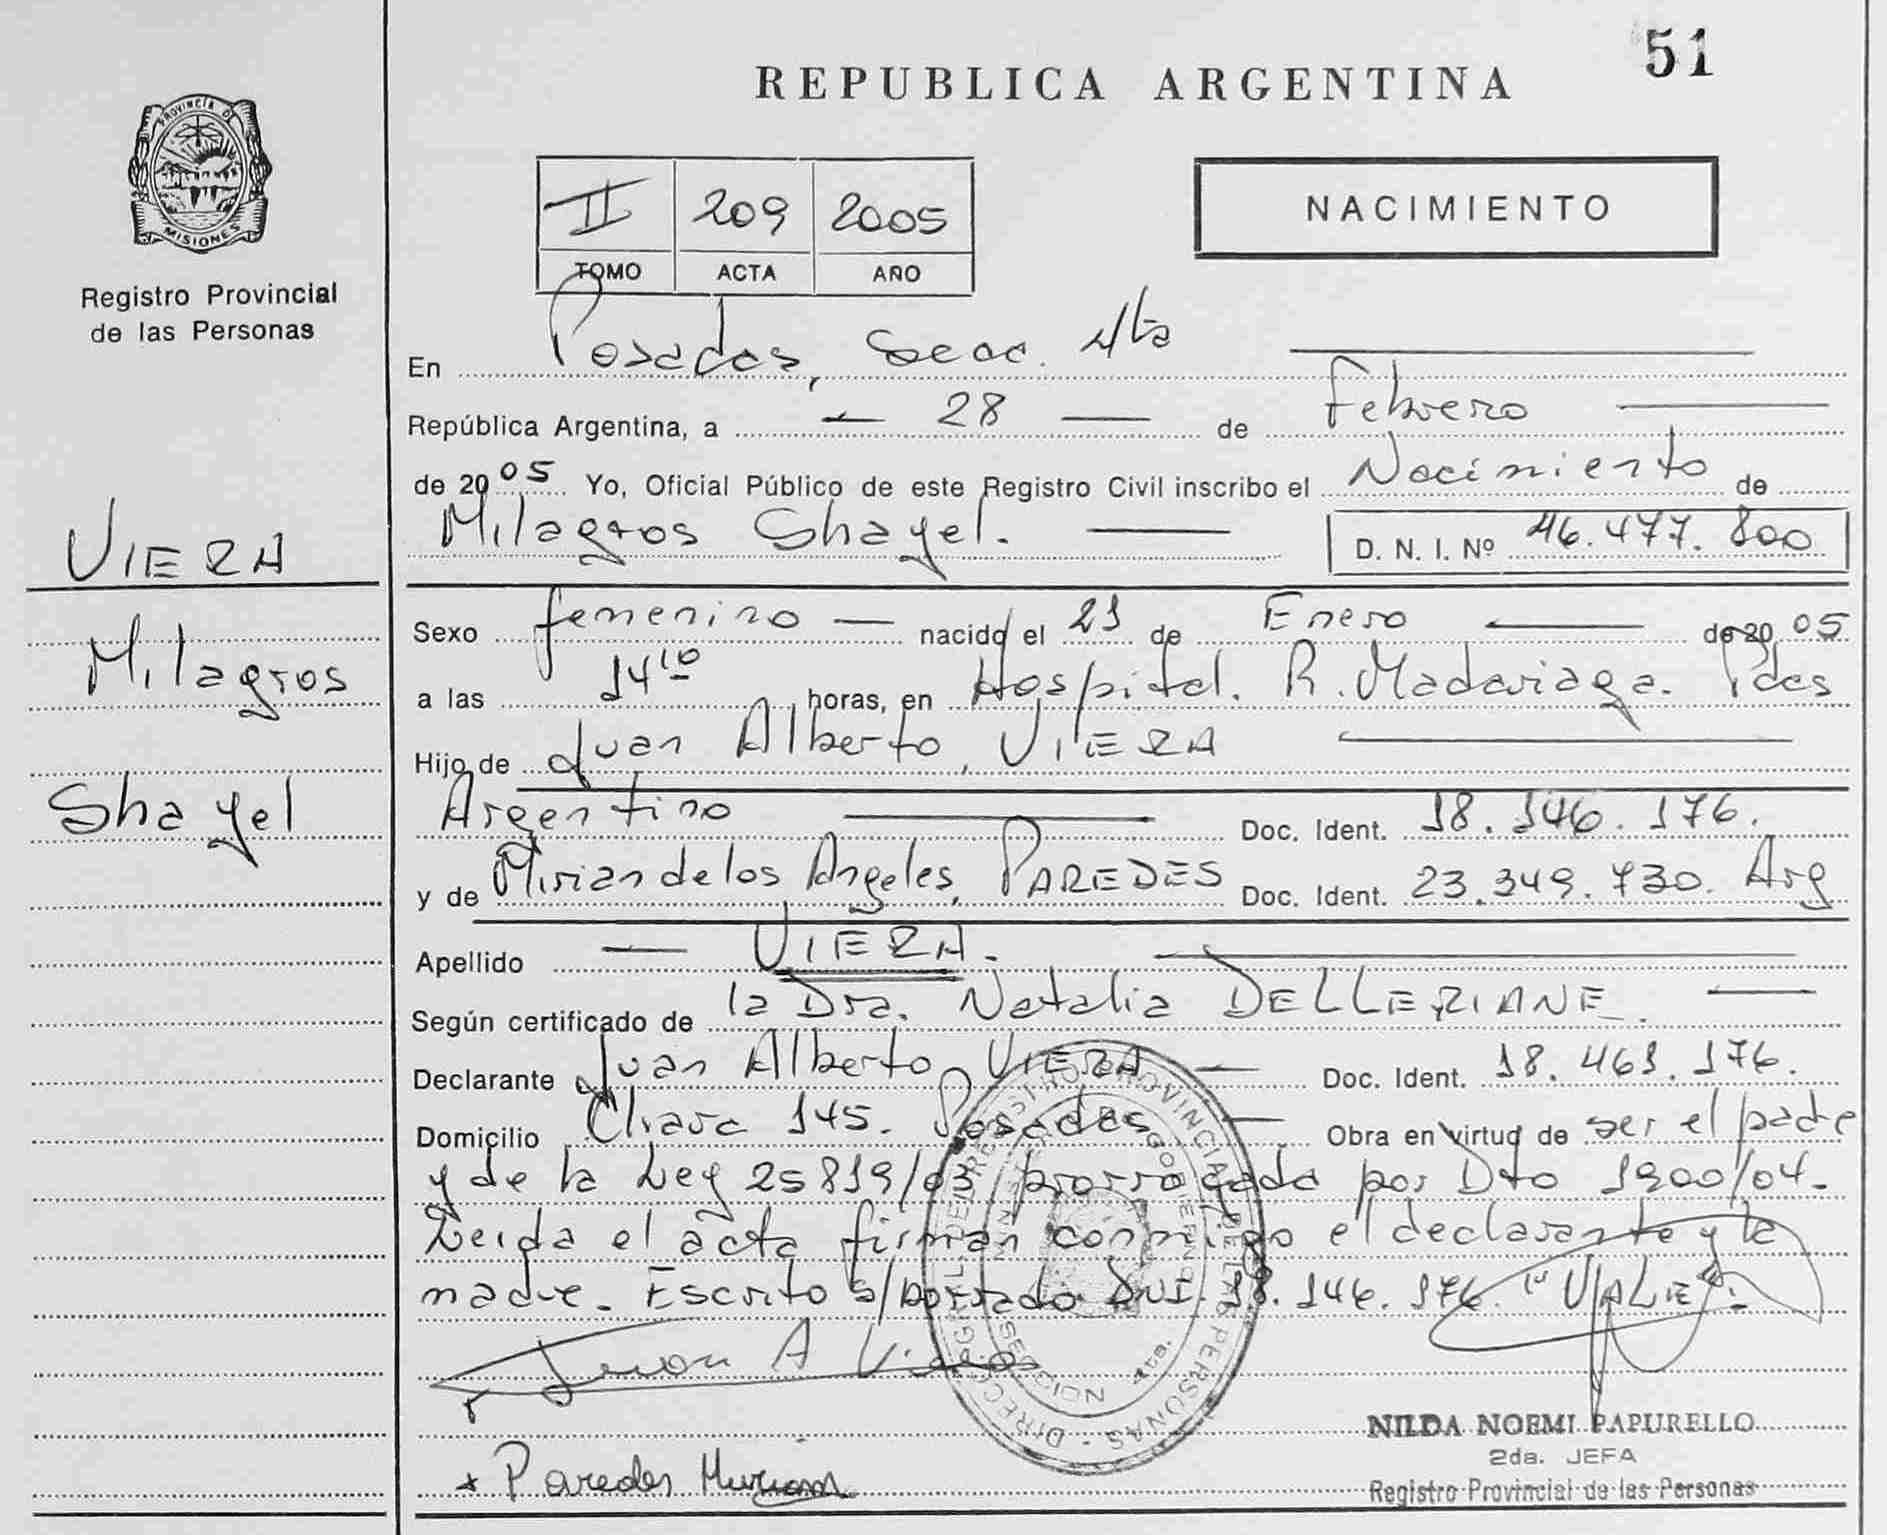 51
REPUBLICA ARGENTINA
PROVINCIA DE
MISIONES
Registro Provincial
de las Personas
II 209 2005
TOMO ACTA AÑO
NACIMIENTO
En Posadas, Secc. 4ta
República Argentina, a — 28 — de Febrero
de 2005 Yo, Oficial Público de este Registro Civil inscribo el Nacimiento de
Milagros Shayel. D. N. I. Nº 46.477.800
VIERA
Milagros
Shayel
Sexo femenino — nacido el 21 de Enero de 2005
a las 14 10 horas, en Hospital. R. Madariaga. Pdas
Hijo de Juan Alberto, VIERA
Argentino Doc. Ident. 18.146.176.
y de Mirian de los Angeles, PAREDES Doc. Ident. 23.349.730. Arg
Apellido — VIERA.
Según certificado de la Dra. Natalia DELLERIANE.
Declarante Juan Alberto VIERA — Doc. Ident. 18.461.176.
Domicilio Chara 145. Posadas — Obra en virtud de ser el padre
y de la Ley 25819/03 prorrogada por Dto 1900/04.
Leida el acta firman conmigo el declarante y la
madre. Escrito s/borrado DNI. 18.146.176. "VALE".
Juan A Viera
DIRECC. GRAL. DEL REGISTRO PROVINCIAL DE LAS PERSONAS
GOBIERNO
SECCION 4ta.
NILDA NOEMI PAPURELLO
2da. JEFA
Registro Provincial de las Personas
x Paredes Miriam